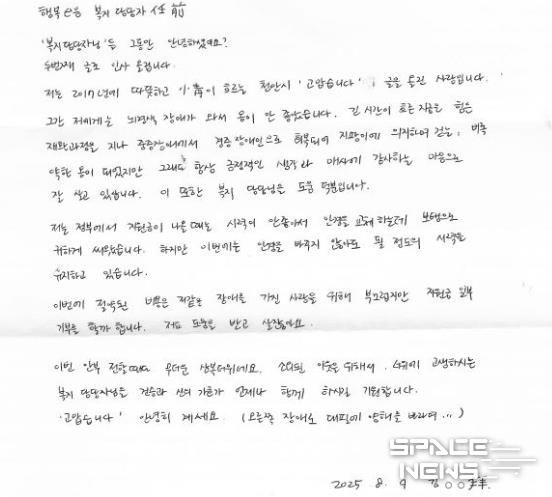 행복e음 복지 담당자 任前
'복지담당자님'들 그동안 안녕하셨어요?
두번째 글로 인사 올립니다.
저는 2017년에 따뜻하고 小青이 흐르는 천안시 '고맙습니다' 글을 올린 사람입니다.
그간 저에게는 뇌경색 장애가 와서 몸이 안 좋았습니다. 긴 시간이 흐른 지금은 힘든
재활과정을 지나 중증장애에서 경증장애인으로 회복되어 지팡이에 의지하여 걷는, 비록
약한 몸이 되었지만 그래도 항상 긍정적인 생각과 매사에 감사하는 마음으로
잘 살고 있습니다. 이 또한 복지 담당님들 도움 덕분입니다.
저는 정부에서 지원금이 나올때는 시력이 안좋아서 안경을 교체하는데 보탬으로
귀하게 씌였습니다. 하지만 이번에는 안경을 바꾸지 않아도 될 정도의 시력을
유지하고 있습니다.
이번에 절약된 비용은 저같은 장애를 가진 사람을 위해 부끄럽지만 지원금 일부
기부를 할까 합니다. 저도 도움을 받고 살잖아요.
이번 안부 전할때는 무더운 삼복더위에요. 소외된 이웃을 위해서 고생하시는
복지 담당자님들 건승과 신의 가호가 언제나 함께 하시길 기원합니다.
'고맙습니다' 안녕히 계세요. (오른쪽 장애로 대필에 양해를 바라며...)
2025 8. 9 김○○拜.
SPACE
NEWS